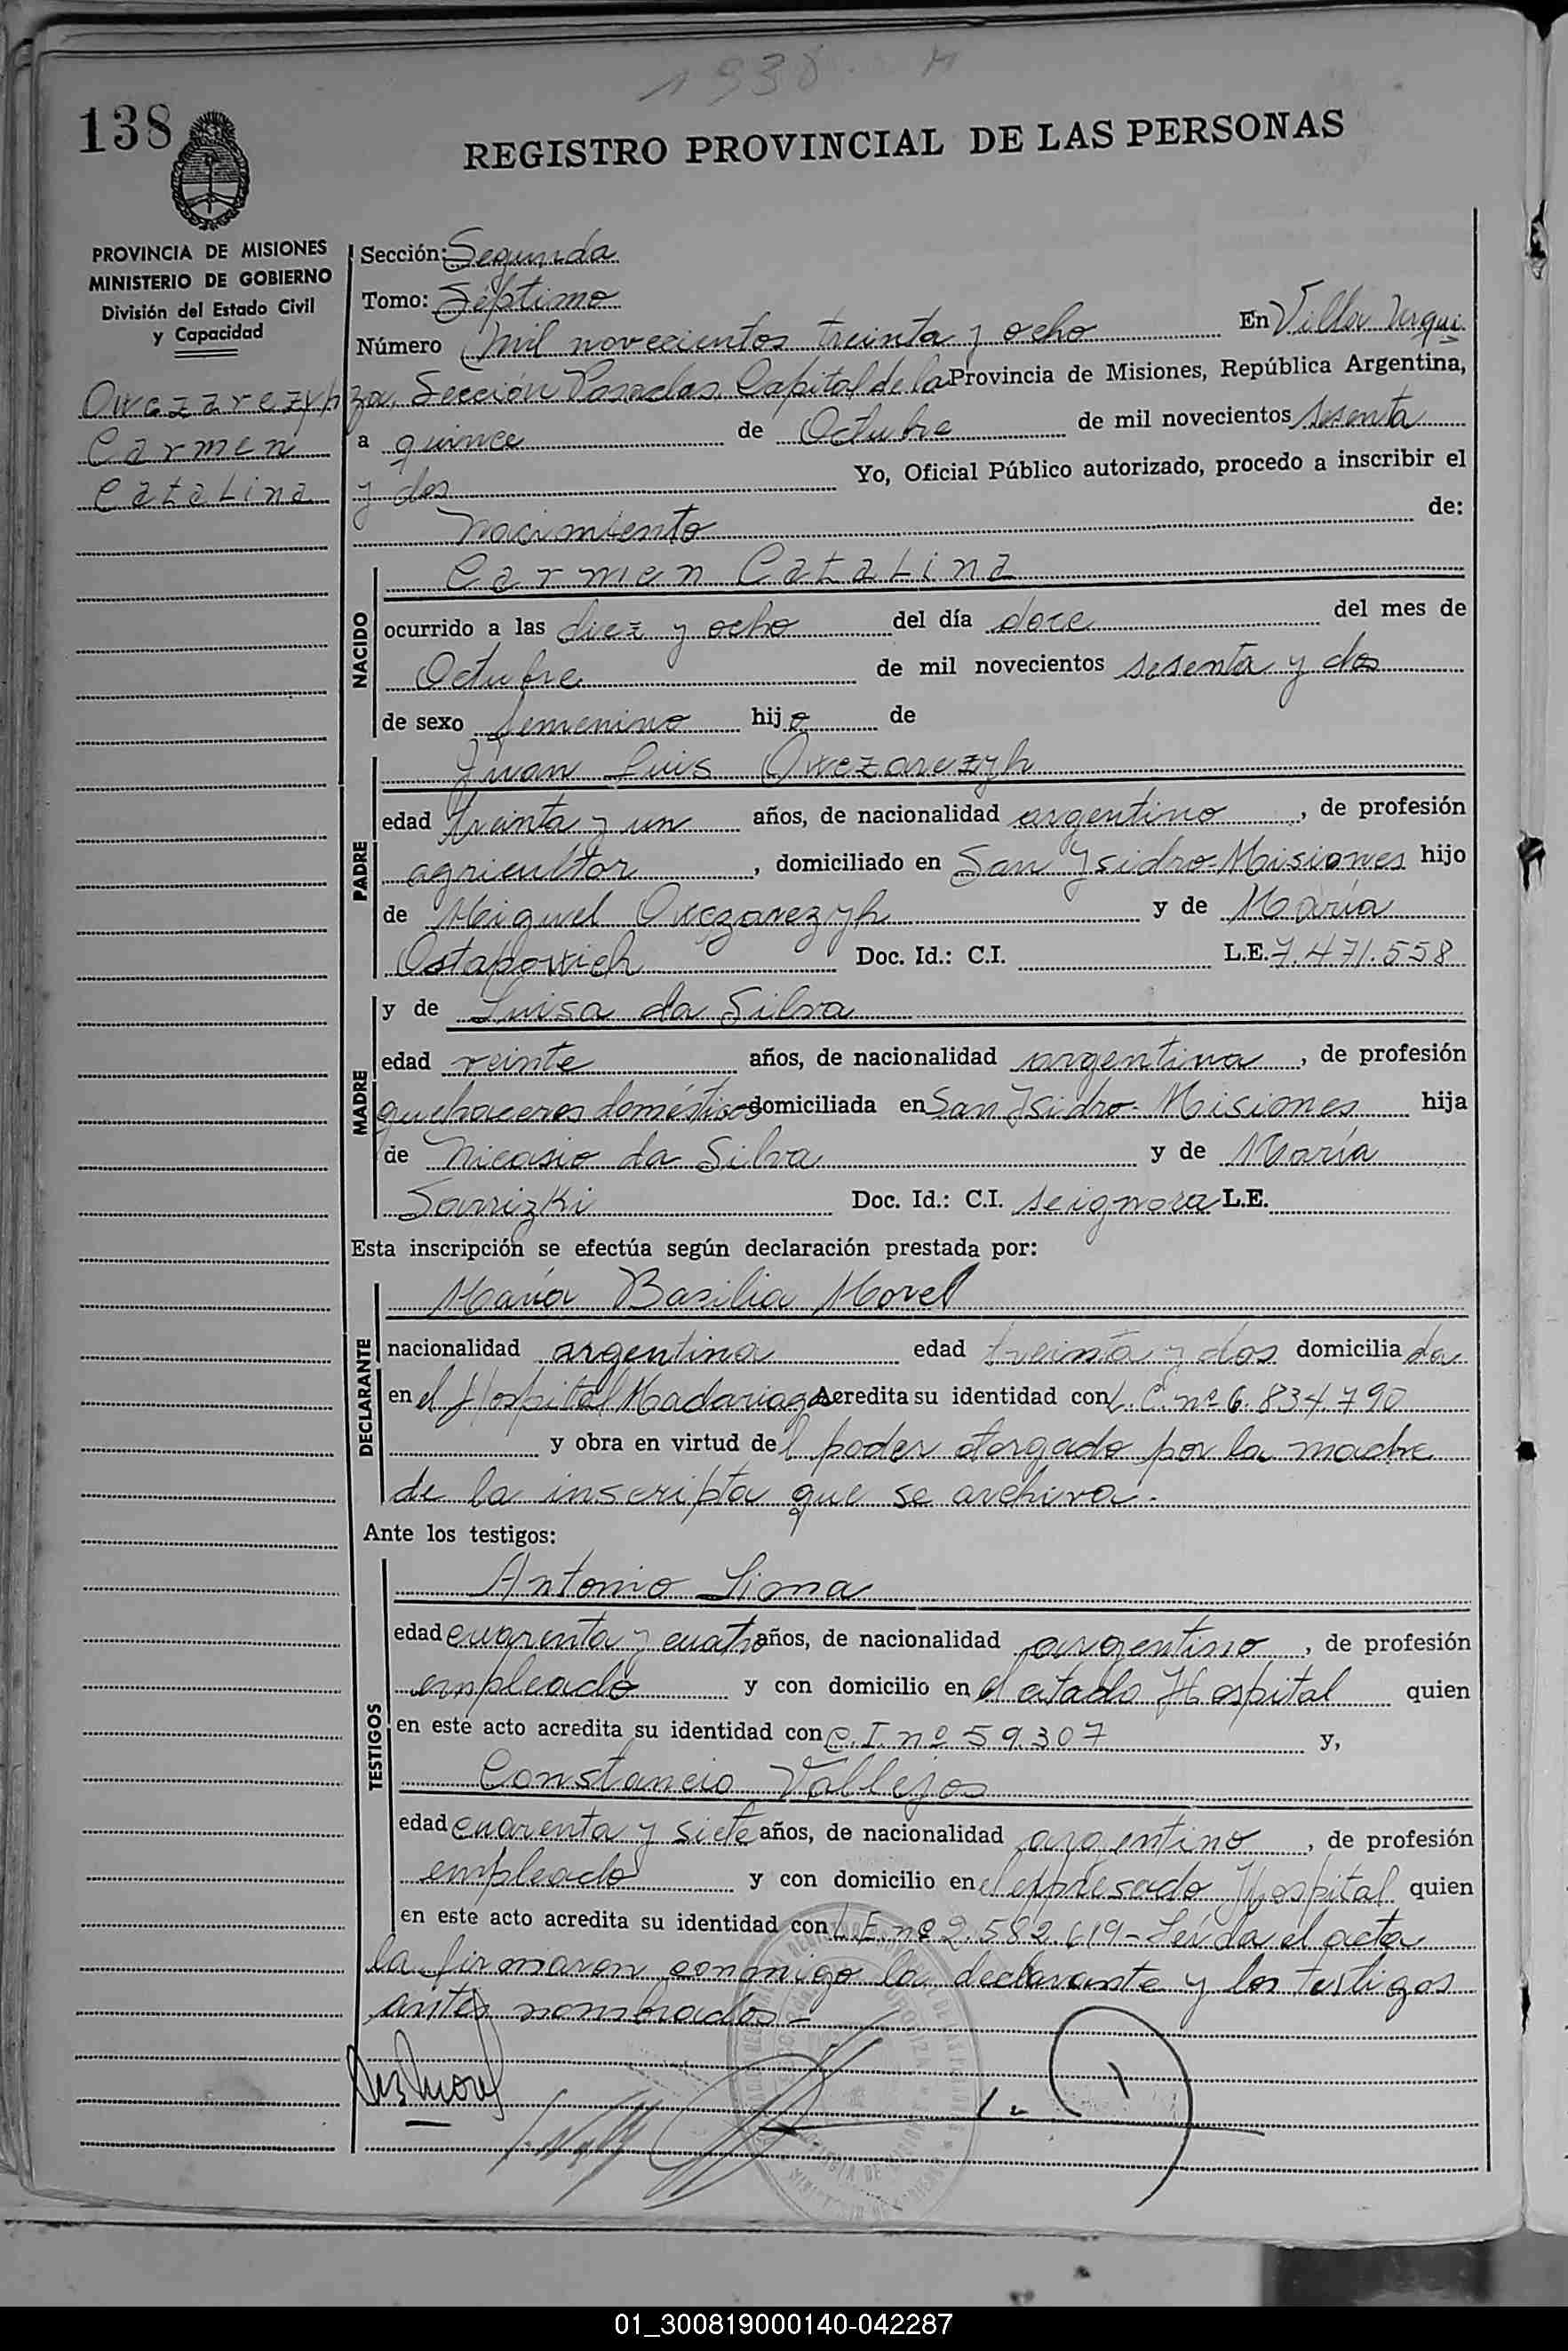 1938. N
138
REGISTRO PROVINCIAL DE LAS PERSONAS
PROVINCIA DE MISIONES
MINISTERIO DE GOBIERNO
División del Estado Civil
y Capacidad
Owczarezyh
Carmen
Catalina
Sección: Segunda
Tomo: Séptimo
Número Mil novecientos treinta y ocho En Villa Urqui
za, Sección Posadas, Capital de la Provincia de Misiones, República Argentina,
a quince de Octubre de mil novecientos sesenta
y dos Yo, Oficial Público autorizado, procedo a inscribir el
nacimiento de:
NACIDO
Carmen Catalina
ocurrido a las diez y ocho del día doce del mes de
Octubre de mil novecientos sesenta y dos
de sexo femenino hijo de
PADRE
Juan Luis Owczarezyh
edad treinta y un años, de nacionalidad argentino, de profesión
agricultor, domiciliado en San Ysidro-Misiones hijo
de Miguel Owczarezyh y de María
Ostapowich Doc. Id.: C.I. L.E. 7.471.558
MADRE
y de Luisa da Silva
edad veinte años, de nacionalidad argentina, de profesión
quehaceres domésticos domiciliada en San Isidro-Misiones hija
de Nicasio da Silva y de María
Sarrizki Doc. Id.: C.I. se ignora L.E.
Esta inscripción se efectúa según declaración prestada por:
DECLARANTE
María Basilia Morel
nacionalidad argentina edad treinta y dos domiciliada
en el Hospital Madariaga Acredita su identidad con L.C. nº 6.834.790
y obra en virtud del poder otorgado por la madre
de la inscripta que se archiva.-
Ante los testigos:
TESTIGOS
Antonio Lima
edad cuarenta y cuatro años, de nacionalidad argentino, de profesión
empleado y con domicilio en el citado Hospital quien
en este acto acredita su identidad con C.I. nº 59.307 y,
Constancio Vallejos
edad cuarenta y siete años, de nacionalidad argentino, de profesión
empleado y con domicilio en el expresado Hospital quien
en este acto acredita su identidad con L.E. nº 2.582.619- Leída el acta
la firmaron conmigo la declarante y los testigos
antes nombrados-
01_300819000140-042287